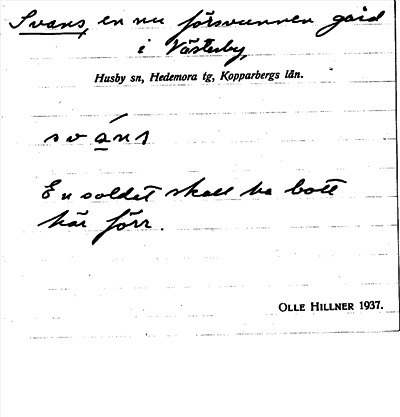 Svans, en nu försvunnen gård
i Västerby,
Husby sn, Hedemora tg, Kopparbergs län.
sván1
En soldat skall ha bott
här förr.
OLLE HILLNER 1937.